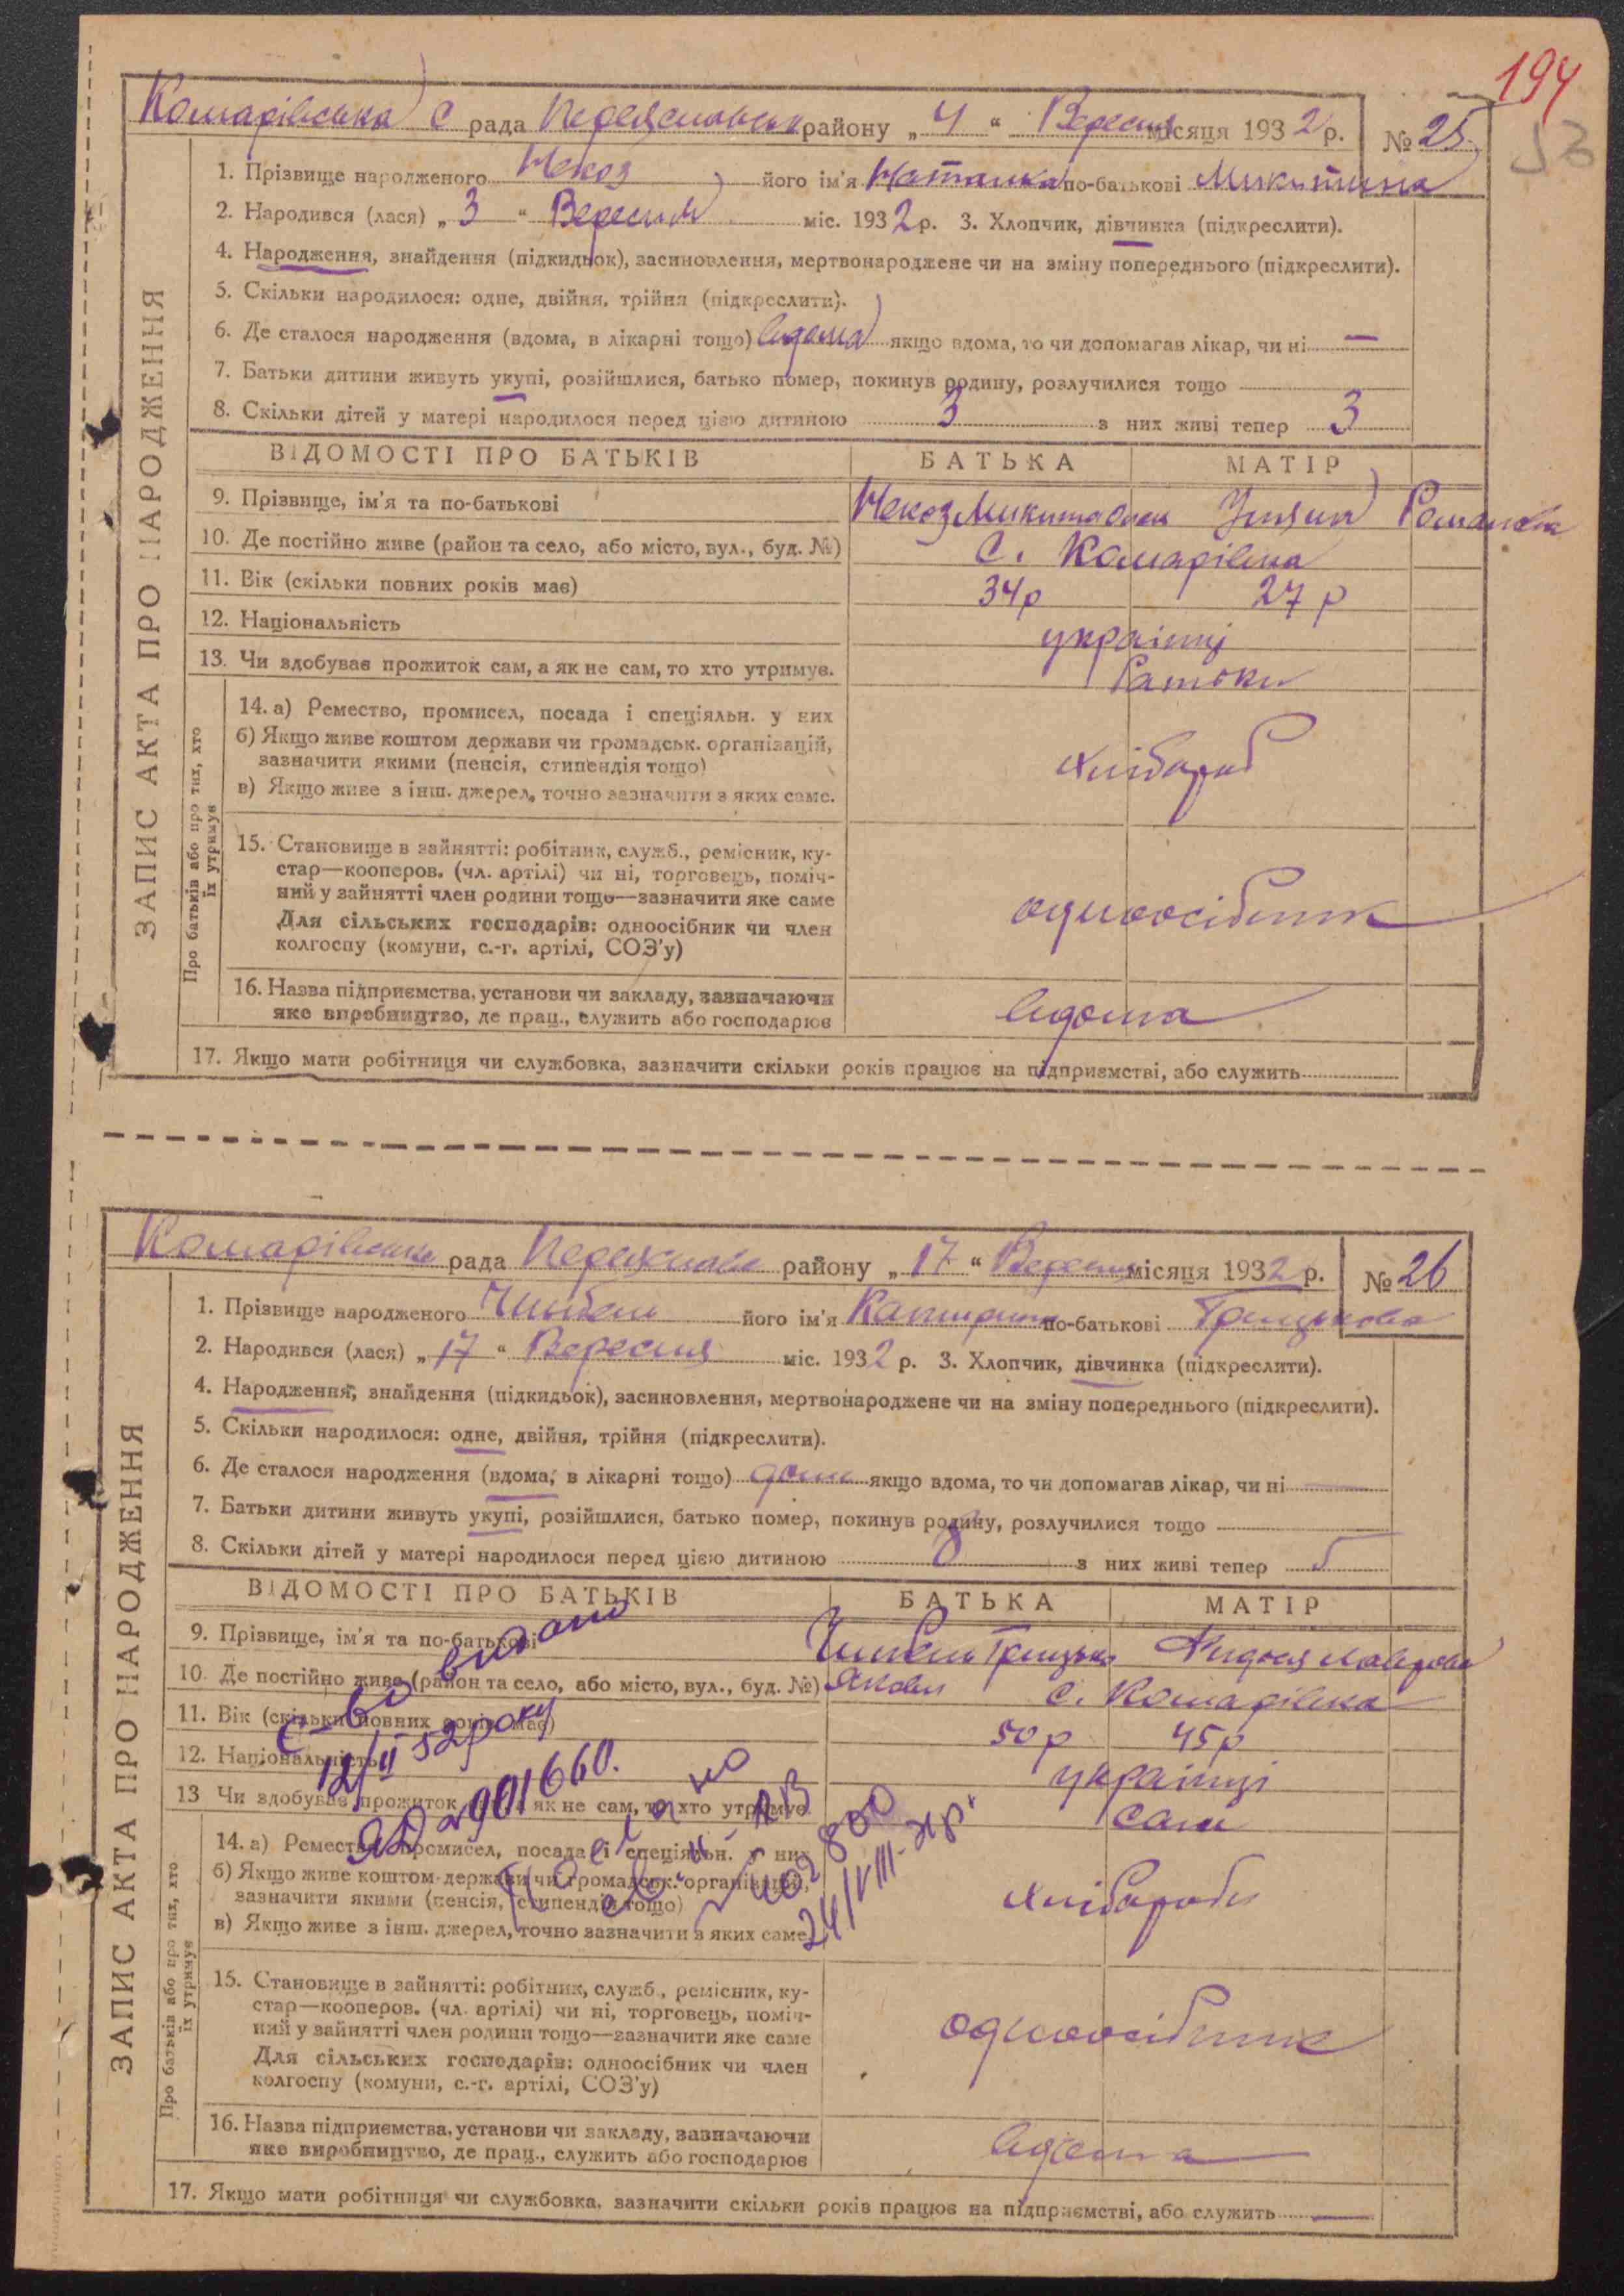 194
53
Комарівська с рада Переяславськ району „4“ Вересня місяця 1932 р. № 25
ЗАПИС АКТА ПРО НАРОДЖЕННЯ
1. Прізвище народженого Чекоз його ім'я Наталка по-батькові Микитина
2. Народився (лася) „3“ Вересня міс. 1932 р. 3. Хлопчик, дівчинка (підкреслити).
4. Народження, знайдення (підкидьок), засиновлення, мертвонароджене чи на зміну попереднього (підкреслити).
5. Скільки народилося: одне, двійня, трійня (підкреслити).
6. Де сталося народження (вдома, в лікарні тощо) вдома якщо вдома, то чи допомагав лікар, чи ні —
7. Батьки дитини живуть укупі, розійшлися, батько помер, покинув родину, розлучилися тощо
8. Скільки дітей у матері народилося перед цією дитиною 3 з них живі тепер 3
ВІДОМОСТІ ПРО БАТЬКІВ БАТЬКА МАТІР
9. Прізвище, ім'я та по-батькові Чекоз Микита Улян Романова
10. Де постійно живе (район та село, або місто, вул., буд. №) с. Комарівка
11. Вік (скільки повних років має) 34р 27р
12. Національність українці
13. Чи здобуває прожиток сам, а як не сам, то хто утримує. Батьки
Про батьків або про тих, хто їх утримує
14. а) Ремество, промисел, посада і спеціяльн. у них
б) Якщо живе коштом держави чи громадськ. організацій,
зазначити якими (пенсія, стипендія тощо)
в) Якщо живе з інш. джерел, точно зазначити з яких саме.
хлібороб
15. Становище в зайнятті: робітник, служб., ремісник, ку-
стар—кооперов. (чл. артілі) чи ні, торговець, поміч-
ний у зайнятті член родини тощо—зазначити яке саме
Для сільських господарів: одноосібник чи член
колгоспу (комуни, с.-г. артілі, СОЗ'у)
одноосібник
16. Назва підприємства, установи чи закладу, зазначаючи
яке виробництво, де прац., служить або господарює
вдома
17. Якщо мати робітниця чи службовка, зазначити скільки років працює на підприємстві, або служить
Комарівська рада Переяслав району „17“ Вересня місяця 1932 р. № 26
ЗАПИС АКТА ПРО НАРОДЖЕННЯ
1. Прізвище народженого його ім'я Катирина по-батькові Грицькова
2. Народився (лася) „17“ Вересня міс. 1932 р. 3. Хлопчик, дівчинка (підкреслити).
4. Народження, знайдення (підкидьок), засиновлення, мертвонароджене чи на зміну попереднього (підкреслити).
5. Скільки народилося: одне, двійня, трійня (підкреслити).
6. Де сталося народження (вдома, в лікарні тощо) дома якщо вдома, то чи допомагав лікар, чи ні —
7. Батьки дитини живуть укупі, розійшлися, батько помер, покинув родину, розлучилися тощо
8. Скільки дітей у матері народилося перед цією дитиною 8 з них живі тепер 5
ВІДОМОСТІ ПРО БАТЬКІВ БАТЬКА МАТІР
9. Прізвище, ім'я та по-батькові Грицько Яковл
10. Де постійно живе (район та село, або місто, вул., буд. №) с. Комарівка
11. Вік (скільки повних років має) 50р 45р
12. Національність українці
13 Чи здобуває прожиток сам, а як не сам, то хто утримує. сам
с-во видано
12/II 52 року
901660.
24/VIII
Про батьків або про тих, хто їх утримує
14. а) Ремество, промисел, посада і спеціяльн. у них
б) Якщо живе коштом держави чи громадськ. організацій,
зазначити якими (пенсія, стипендія тощо)
в) Якщо живе з інш. джерел, точно зазначити з яких саме.
хлібороби
15. Становище в зайнятті: робітник, служб., ремісник, ку-
стар—кооперов. (чл. артілі) чи ні, торговець, поміч-
ний у зайнятті член родини тощо—зазначити яке саме
Для сільських господарів: одноосібник чи член
колгоспу (комуни, с.-г. артілі, СОЗ'у)
одноосібник
16. Назва підприємства, установи чи закладу, зазначаючи
яке виробництво, де прац., служить або господарює
вдома
17. Якщо мати робітниця чи службовка, зазначити скільки років працює на підприємстві, або служить —